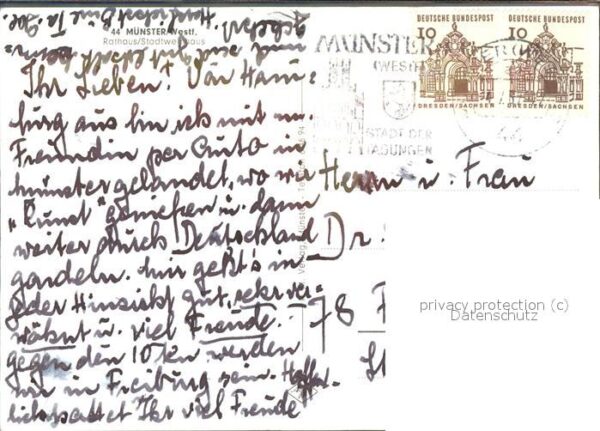 44 MÜNSTER Westf.
Rathaus/Stadtweinhaus
Ihr Lieben! Von Ham-
burg aus bin ich mit
Freundin per Auto in
Münster gelandet, wo wir
"Kunst" genießen u. dann
weiter durch Deutschland
gondeln. Mir geht's in
jeder Hinsicht gut, sehr ver-
wöhnt u. viel Freude.
gegen den 10ten werden
wir in Freiburg sein. Hoffent-
lich hattet Ihr viel Freude
MÜNSTER
(WESTF)
STADT DER
TAGUNGEN
44
DEUTSCHE BUNDESPOST
10
DRESDEN/SACHSEN
DEUTSCHE BUNDESPOST
10
DRESDEN/SACHSEN
Herrn u. Frau
Dr.
78 F
St
privacy protection (c)
Datenschutz